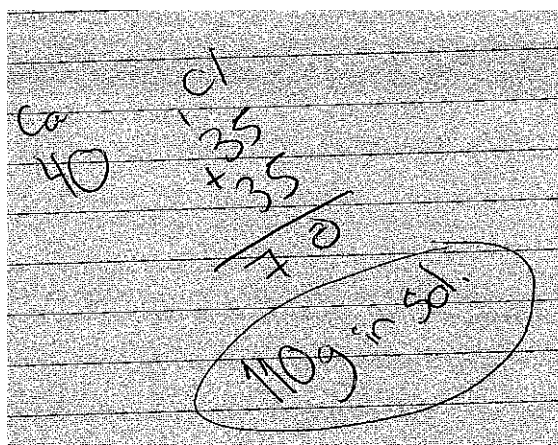 Ca
40
Cl
35
+ 35
70
110g in sol.